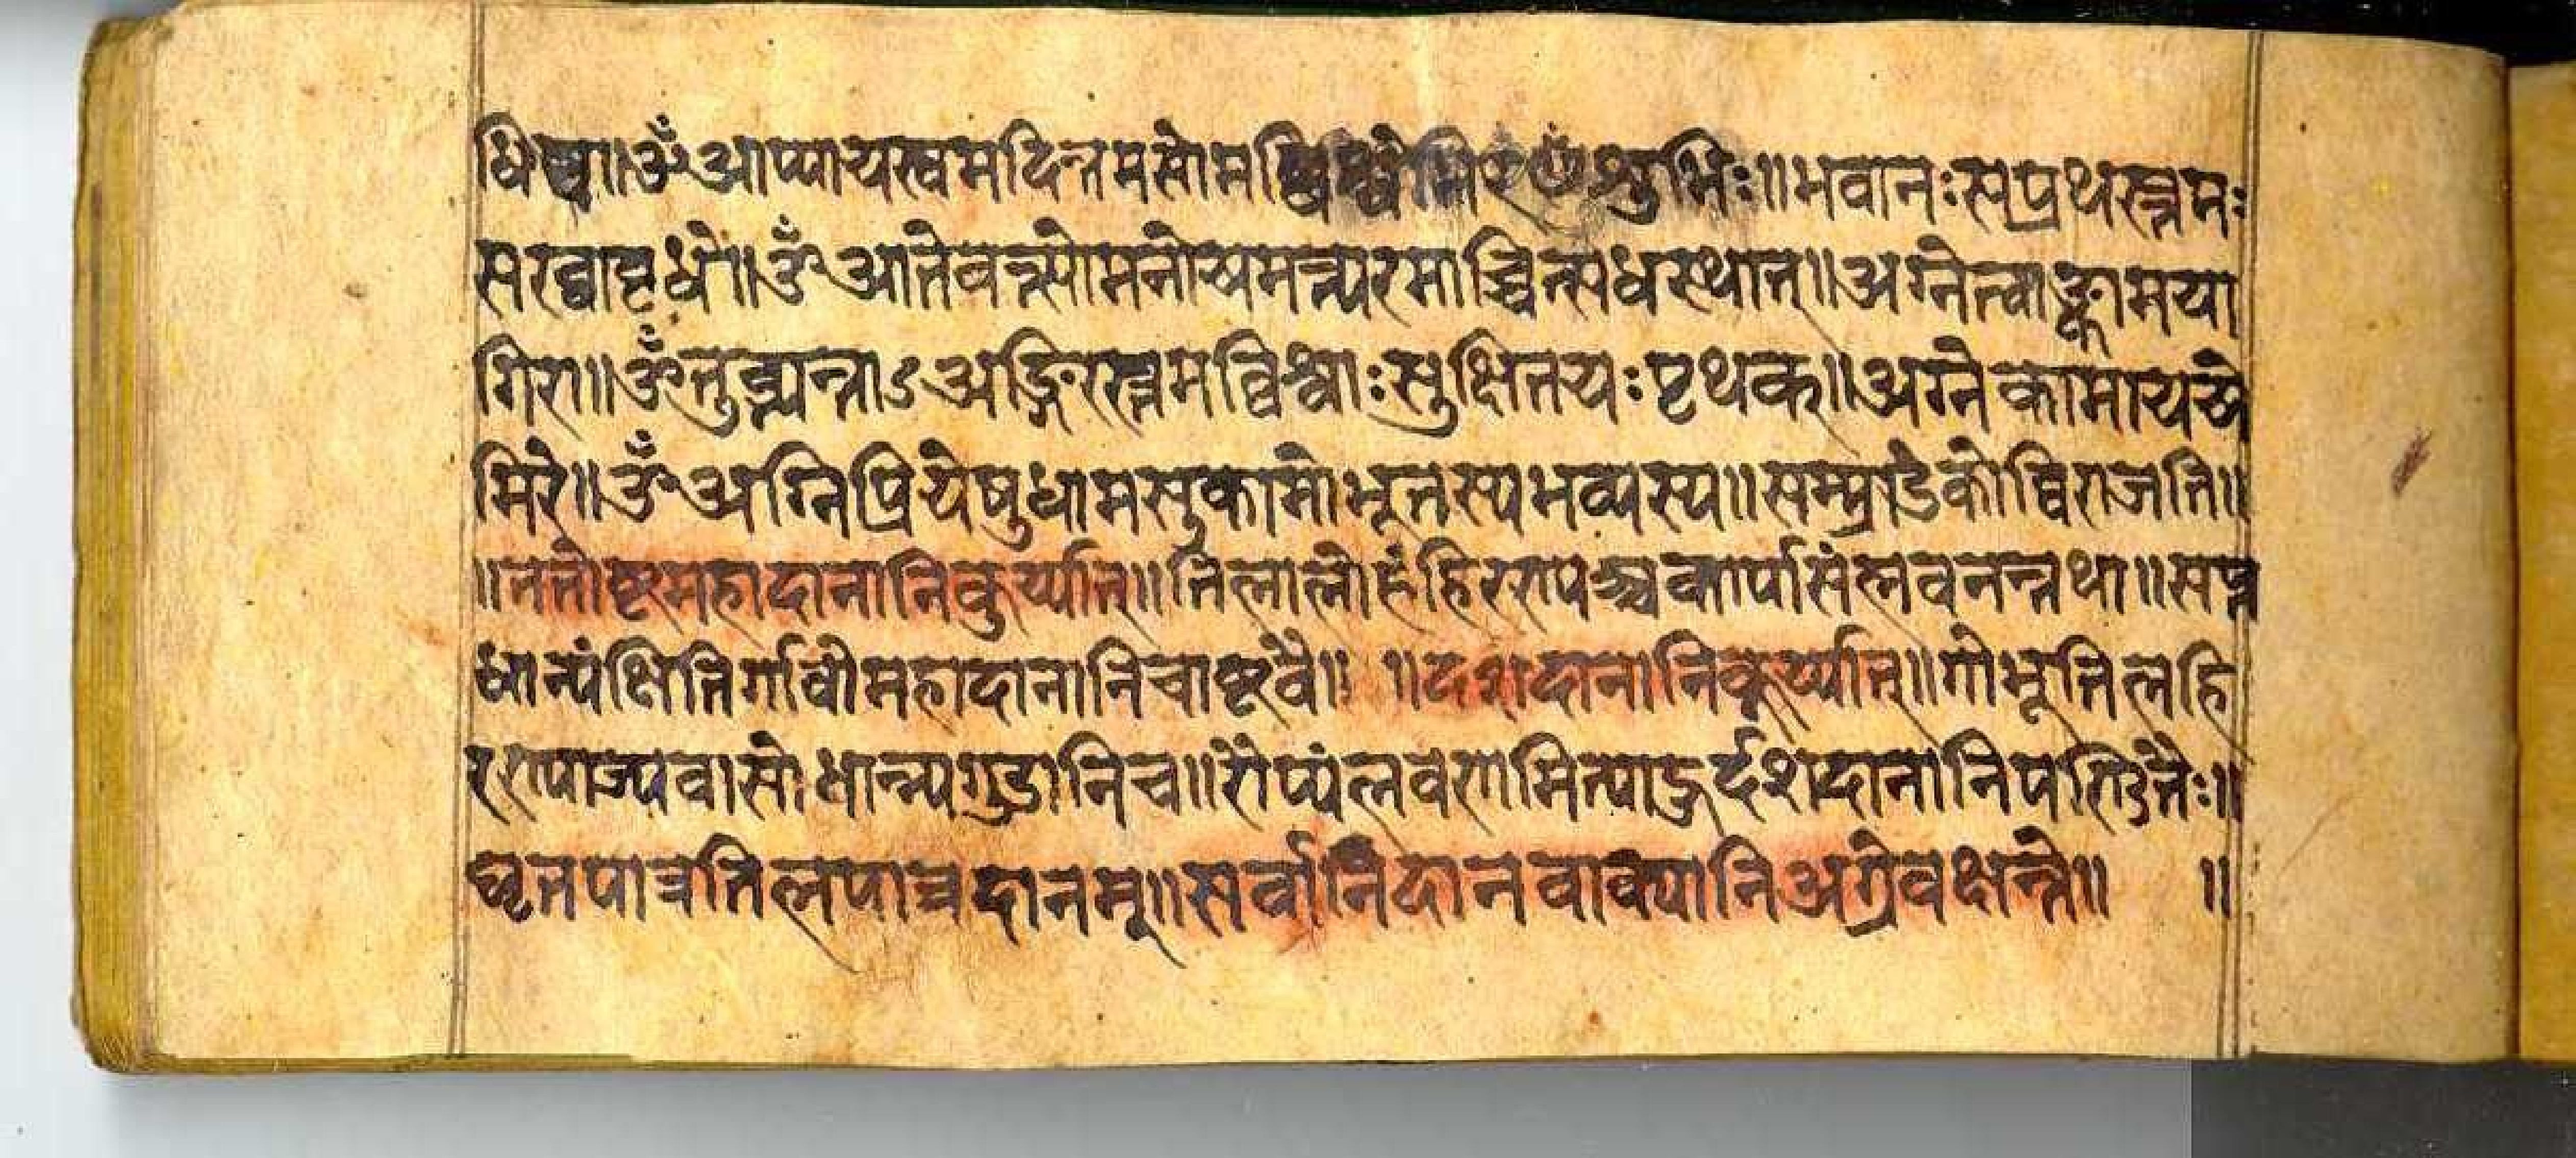 धिष्व॥ॐआप्यायस्वमदिन्तमसोमव्विश्श्वेभिरᳪशुभिः॥भवानःसप्रथस्त्तमः
सखाव्वृधे॥ॐआतेवत्सोमनोयमत्त्परमाच्चित्सधस्थात्॥अग्नेत्वाङ्कामया
गिरा॥ॐतुब्भ्यन्ताऽअङ्गिरस्त्तमव्विश्वाःसुक्षितयःपृथक्॥अग्नेकामायये
मिरे॥ॐअग्निप्रियेषुधामसुकामोभूतस्यभव्यस्य॥सम्म्राडेकोव्विराजति॥
॥ततोष्टमहादानानिकुर्य्यात्॥तिलालोहंहिरण्यञ्चकार्पासंलवनन्तथा॥सप्त
धान्यंक्षितिर्गावोमहादानानिचाष्टवै॥ ॥दशदानानिकुर्य्यात्॥गोभूतिलहि
रण्याज्यवासोधान्यगुडानिच॥रौप्यंलवणमित्याहुर्दशदानानिपण्डितैः॥
घृतपात्रतिलपात्रदानम्॥सर्वानिदानवाक्यानिअग्रेवक्षन्ते॥ ॥